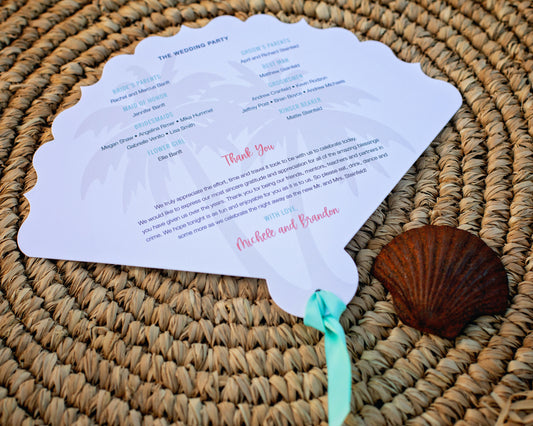 THE WEDDING PARTY
BRIDE'S PARENTS
Rachel and Marcus Banft
MAID OF HONOR
Jennifer Banft
BRIDESMAIDS
Megan Shaw • Angelina Rinow • Mika Hummel
Gabrielle Verillo • Lisa Smith
FLOWER GIRL
Ellie Banft
GROOM'S PARENTS
April and Richard Steinfeld
BEST MAN
Matthew Steinfeld
GROOMSMEN
Andrew Cranfield • Kevin Rodson
Jeffrey Post • Brian Boyce • Andrew Michaels
RINGER BEARER
Mattie Steinfeld
Thank You
We truly appreciate the effort, time and travel it took to be with us to celebrate today.
We would like to express our most sincere gratitude and appreciation for all of the amazing blessings
you have given us over the years. Thank you for being our friends, mentors, teachers and partners in
crime. We hope tonight is as fun and enjoyable for you as it is to us. So please eat, drink, dance and
some more as we celebrate the night away as the new Mr. and Mrs. Steinfeld!
WITH LOVE,
Michele and Brandon